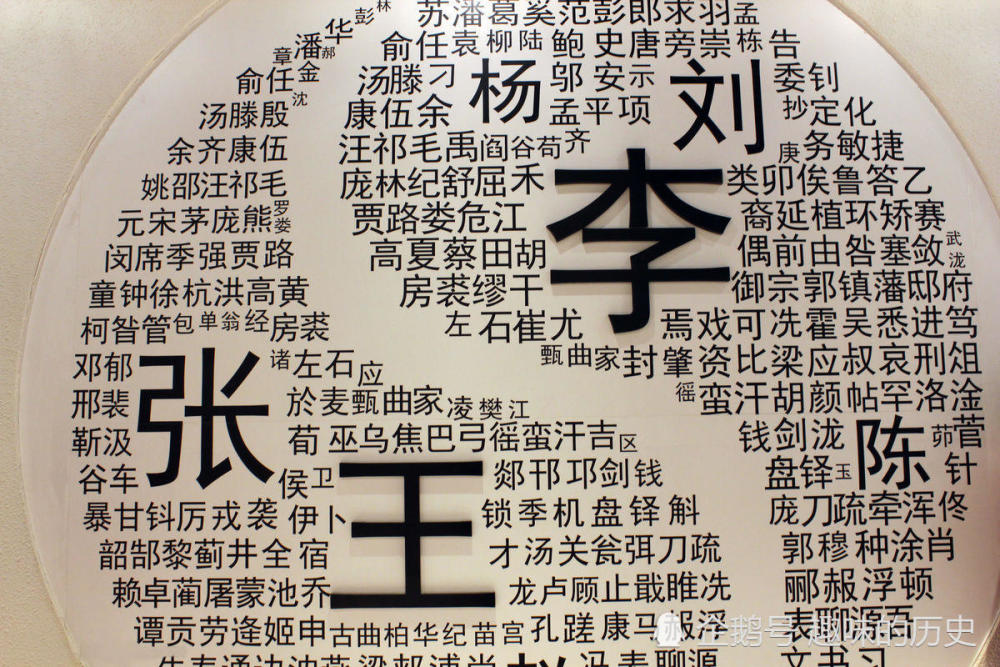 林
苏潘葛奚范彭郎求羽孟
彭
华
俞任袁柳陆鲍史唐旁崇栋告
章潘郝
俞任金
汤滕刁
杨
邬安示
刘
委钊
汤滕殷沈
康伍余
孟平项
抄定化
余齐康伍
汪祁毛禹阎谷荀齐
庚务敏捷
姚邵汪祁毛
庞林纪舒屈禾
李
类卯俟鲁答乙
元宋茅庞熊罗娄
贾路娄危江
裔延植环矫赛
闵席季强贾路
高夏蔡田胡
偶前由昝塞敛武泷
童钟徐杭洪高黄
房裘缪干
御宗郭镇藩邸府
柯昝管包单翁经房裘
左石崔尤
焉戏可冼霍吴悉进笃
邓郁
张
诸左石应
甄曲家封肇资比梁应叔哀刑俎
邢裴
於麦甄曲家凌樊江
徭蛮汗胡颜帖罕洛淦
靳汲
荀巫乌焦巴弓徭蛮汗吉区
钱剑泷
陈
茆菅
谷车
侯卫
王
郯邗邛剑钱
盘铎玉
针
暴甘钭厉戎袭伊卜
锁季机盘铎斛
庞刀疏牵浑佟
韶郜黎蓟井全宿
才汤关瓮弭刀疏
郭穆种涂肖
赖卓蔺屠蒙池乔
龙卢顾止戢睢冼
郦赧浮顿
谭贡劳逄姬申古曲柏华纪苗宫孔蹉康马赧浮
麦聊源
企鹅号 趣味的历史
冯麦聊源
文书习